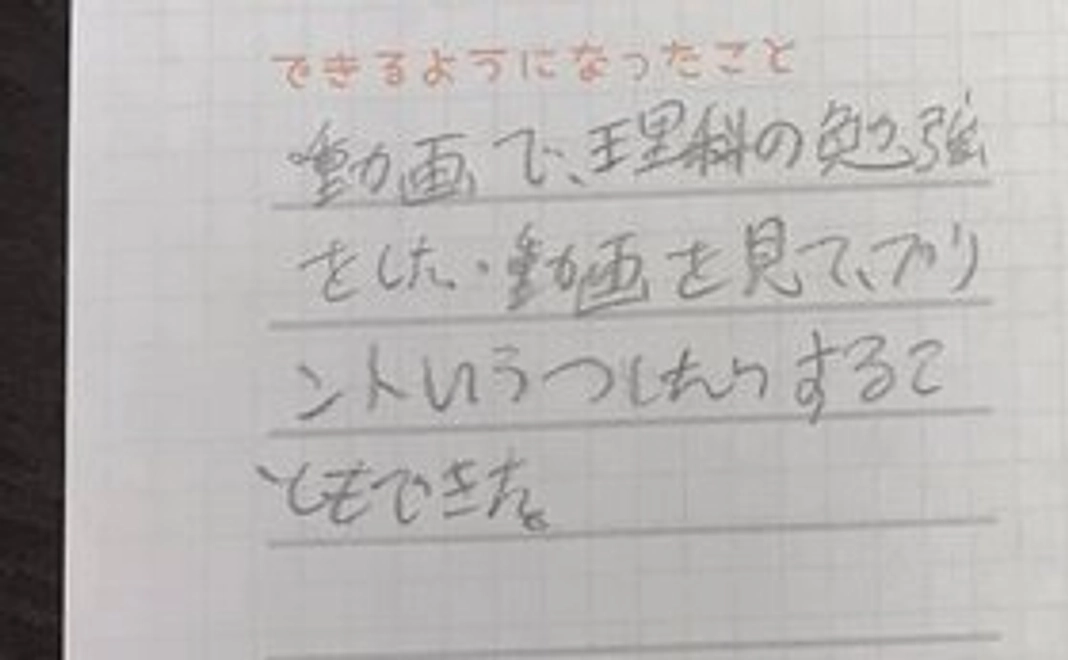 できるようになったこと
動画で、理科の勉強
をした。動画を見て、プリ
ントにうつしたりするこ
ともできた。